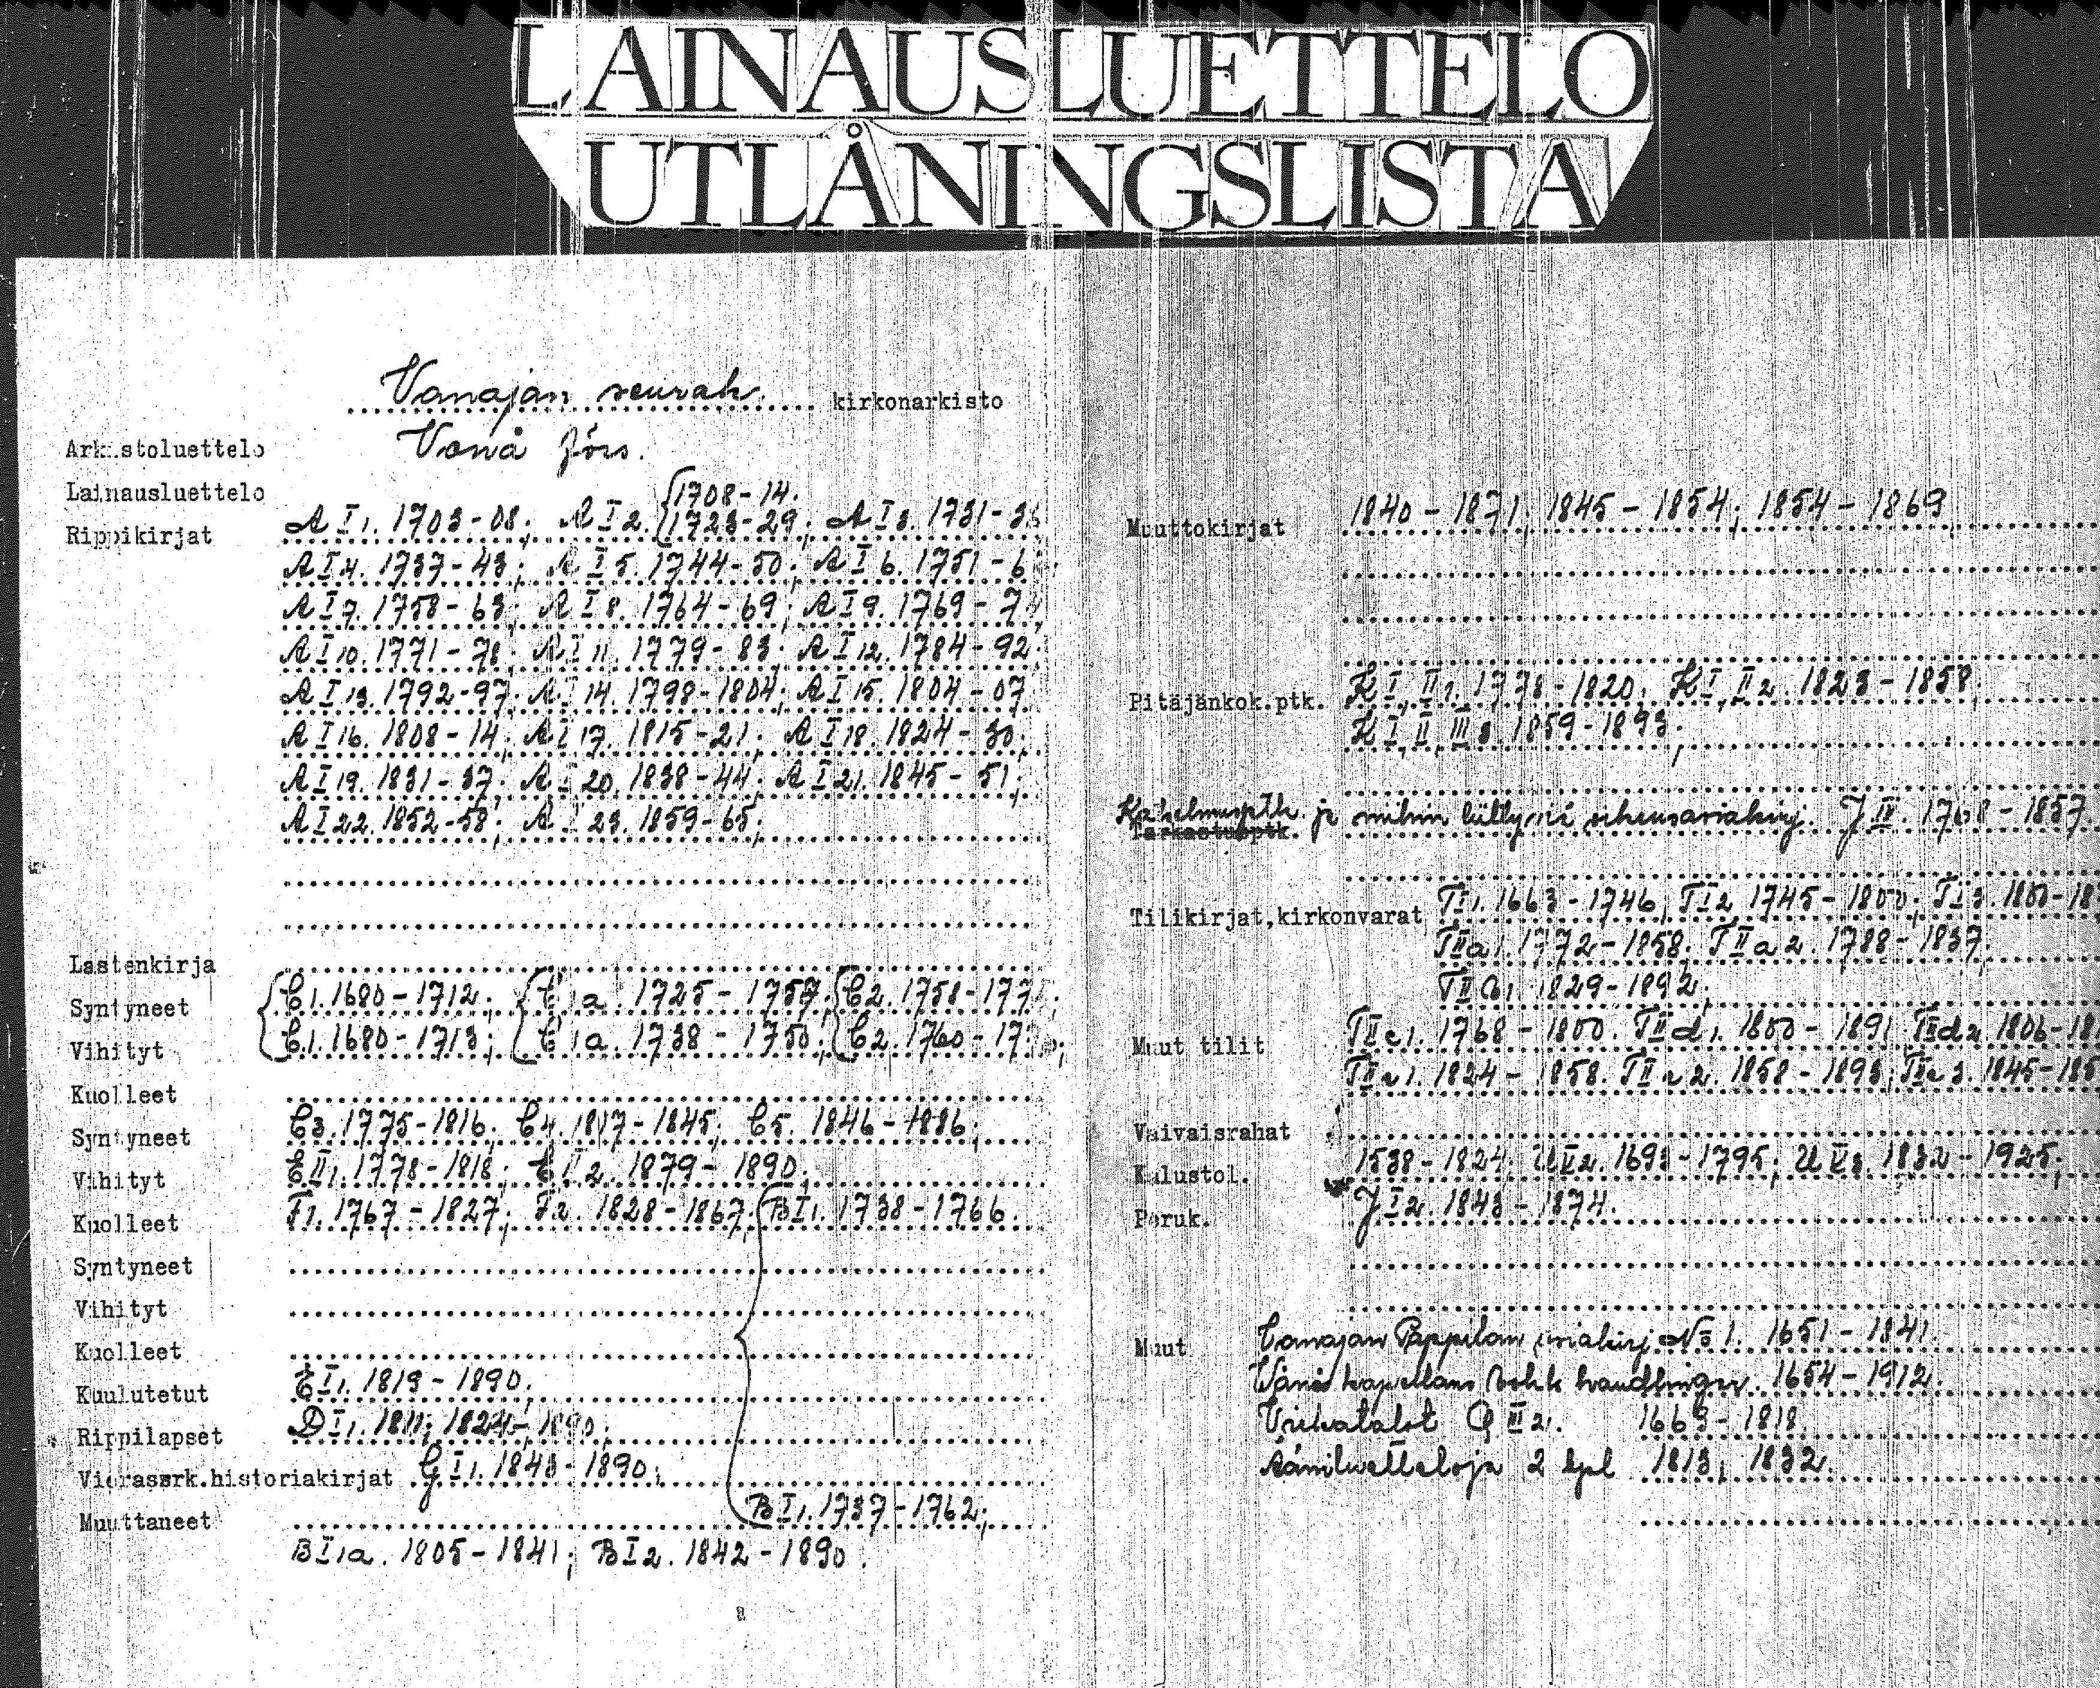 LAINAUSLUETTELO
UTLÅNINGSLISTA
Vanajan seurak. kirkonarkisto
Arkistoluettelo Vanå förs.
Lainausluettelo
Rippikirjat A I 1. 1703-08; A I 2. {1708-14. 1723-29; A I 3. 1731-36
A I 4. 1737-43; A I 5. 1744-50; A I 6. 1751-6
A I 7. 1758-63; A I 8. 1764-69; A I 9. 1769-74
A I 10. 1771-78; A I 11. 1779-83; A I 12. 1784-92;
A I 13. 1792-97; A I 14. 1798-1804; A I 15. 1804-07
A I 16. 1808-14; A I 17. 1815-21; A I 18. 1824-30;
A I 19. 1831-37; A I 20. 1838-44; A I 21. 1845-51;
A I 22. 1852-58; A I 23. 1859-65;
Lastenkirja
Syntyneet {C1. 1680-1712; {C1a. 1725-1757; {C2. 1758-177
Vihityt {C1. 1680-1713; {C1a. 1738-1750; {C2. 1760-17
Kuolleet
Syntyneet C3. 1775-1816; C4. 1817-1845; C5. 1846-1886;
Vihityt E II 1. 1778-1818; E II 2. 1879-1890;
Kuolleet F1. 1767-1827; F2. 1828-1867; {B I 1. 1738-1766.
Syntyneet
Vihityt
Kuolleet
Kuulutetut E I 1. 1819-1890;
Rippilapset D I 1. 1811; 1824-1890;
Vierassrk.historiakirjat G I 1. 1843-1890;
Muuttaneet B I 1. 1737-1762;
B I 1a. 1805-1841; B I 2. 1842-1890.
Muuttokirjat 1840-1871; 1845-1854; 1854-1869
Pitäjänkok.ptk. K I, II 1. 1778-1820; K I, II 2. 1823-1858;
K I, II, III 3. 1859-1893;
Tarkastusptk. ja niihin J IV. 1768-1857
Tilikirjat,kirkonvarat T I 1. 1663-1746; T I 2. 1745-1800; T I 3. 1800-18
T II a 1. 1772-1858; T II a 2. 1788-1837;
1829-1892;
Muut tilit T II c 1. 1768-1800. T II d 1. 1800-1891 T II d 2. 1806-18
T II e 1. 1824-1858. T II e 2. 1858-1893; T II e 3. 1845-185
Vaivaisrahat
Kalustol. 1538-1824; U V 2. 1693-1795; U V 3. 1832-1925;
Peruk. J I 2. 1843-1874.
Muut Vanajan Pappilan asiakirj. No 1. 1651-1841.
Wånå kapellans handlingar. 1654-1912.
Q III 2. 1663-1818.
Ääniluetteloja 2 kpl 1813; 1832.